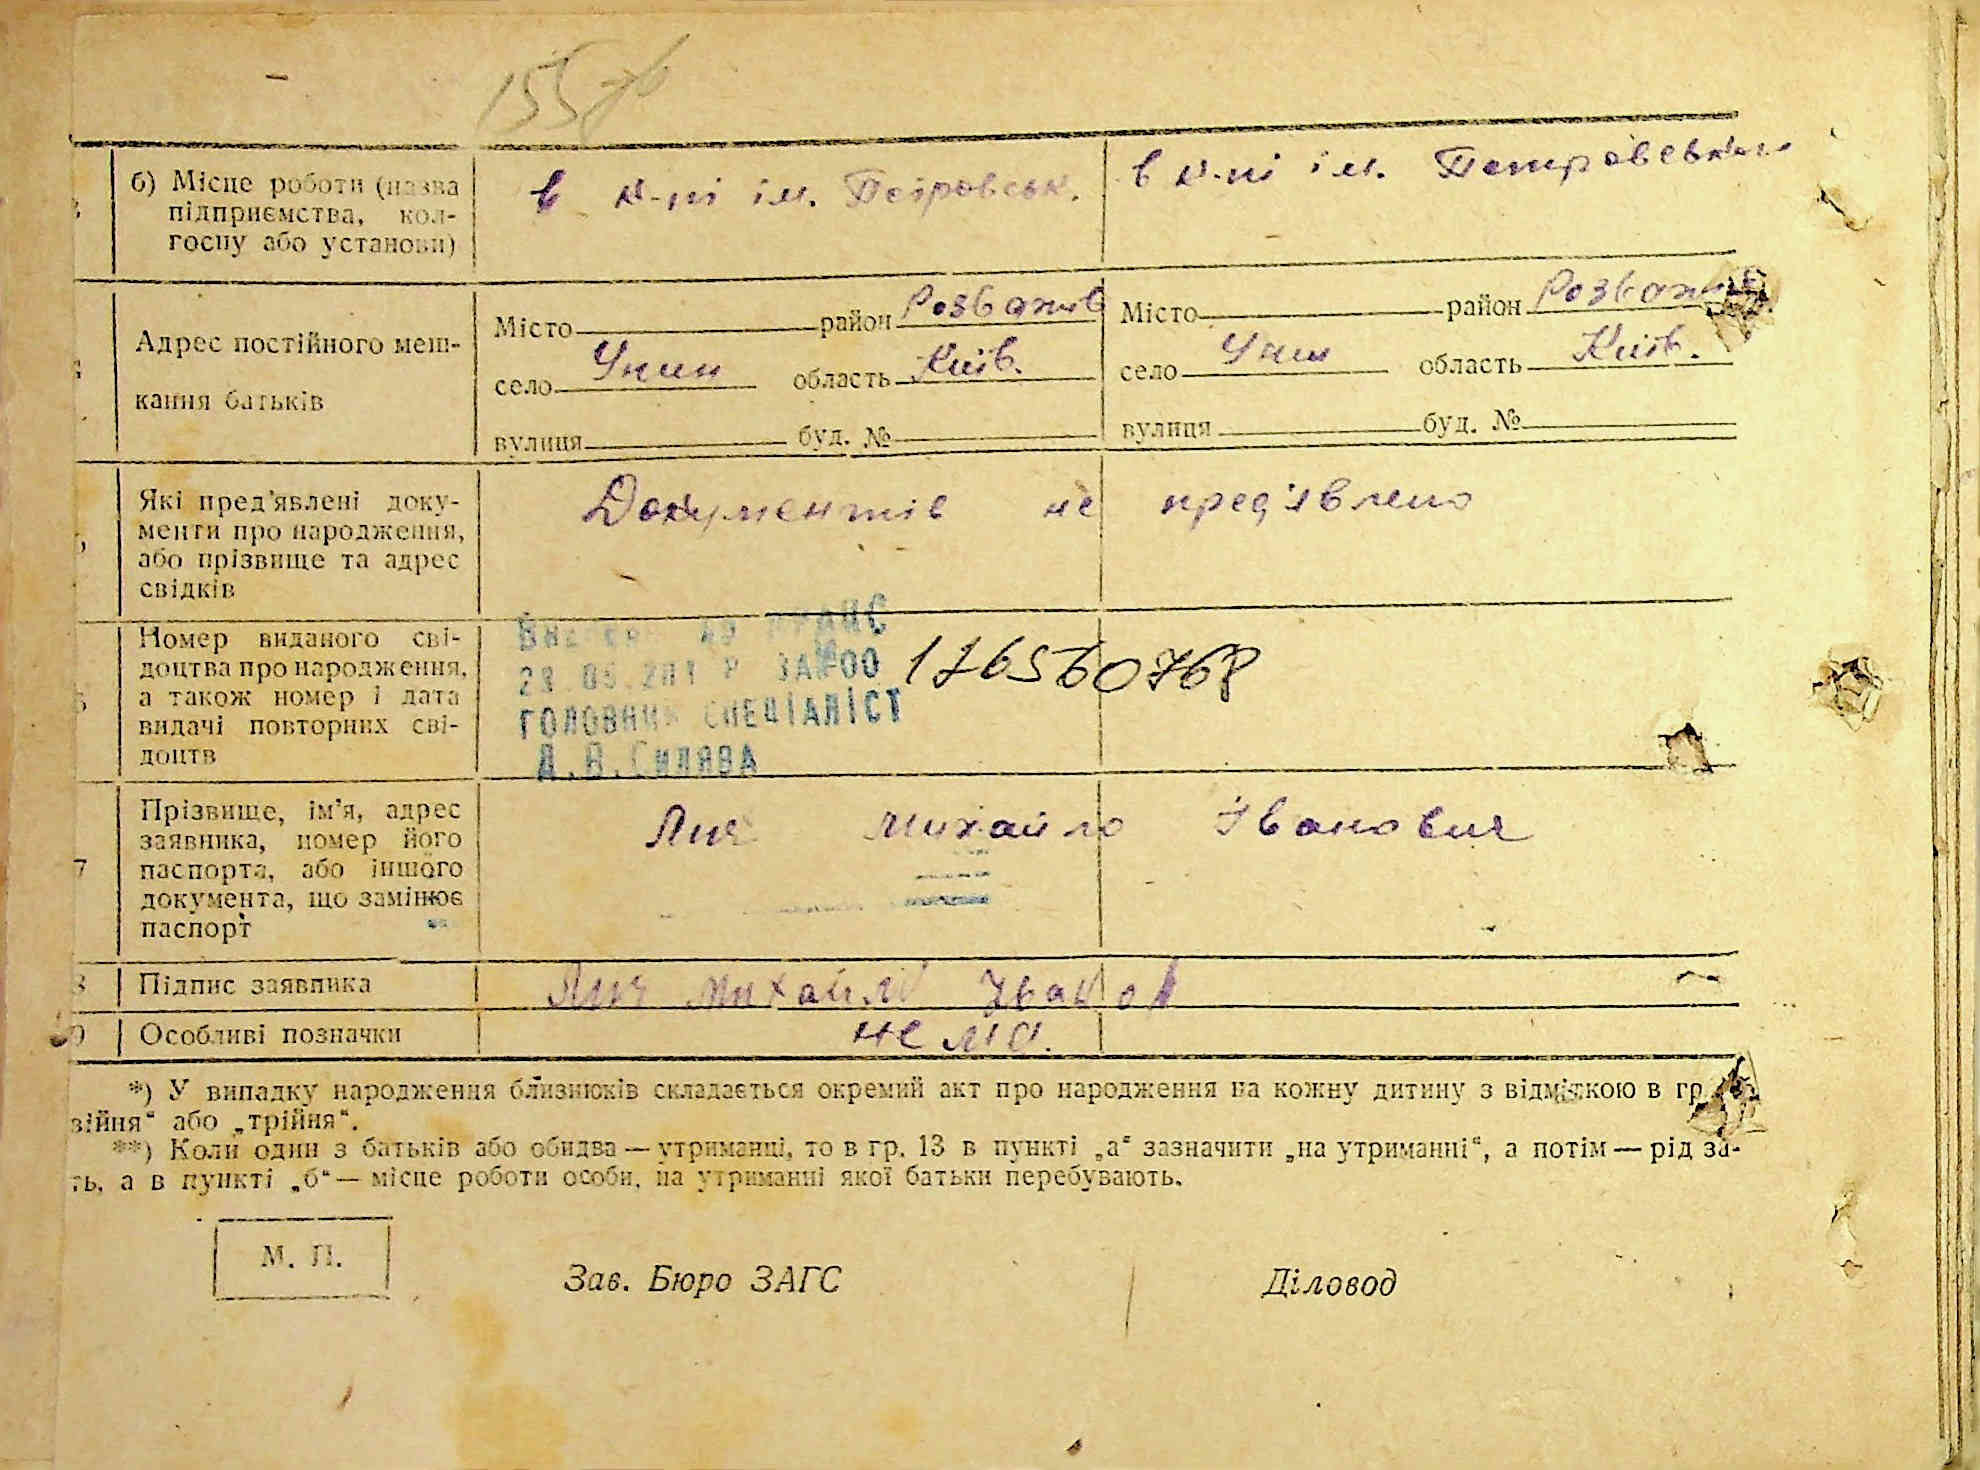 155 зв
б) Місце роботи (назва
підприємства, кол-
госпу або установи)
в к-пі ім. Петровськ.
в к-пі ім. Петровського
Адрес постійного меш-
кання батьків
Місто район Розважів
село Унин область Київ.
вулиця буд. №
Місто район Розважів
село Унин область Київ.
вулиця буд. №
Які пред'явлені доку-
менти про народження,
або прізвище та адрес
свідків
Документів не пред'явлено
Номер виданого сві-
доцтва про народження,
а також номер і дата
видачі повторних сві-
доцтв
ГОЛОВНИЙ СПЕЦІАЛІСТ
Д.В.Силява
7
Прізвище, ім'я, адрес
заявника, номер його
паспорта, або іншого
документа, що замінює
паспорт
Лич Михайло Іванович
Підпис заявника
Лич Михайло Іванов
Особливі позначки
нема.
*) У випадку народження близнюків складається окремий акт про народження на кожну дитину з відміткою в гр.
війня“ або „трійня“.
**) Коли один з батьків або обидва — утриманці, то в гр. 13 в пункті „а“ зазначити „на утриманні“, а потім — рід за-
ть, а в пункті „б“ — місце роботи особи, на утриманні якої батьки перебувають.
М. П.
Зав. Бюро ЗАГС
Діловод